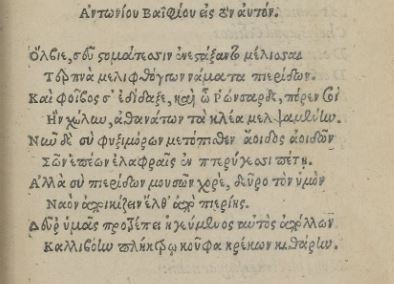 Ἀντωνίου Βαϊφίου εἰς τὸν αὐτόν.
Ὄλβιε, σοῦ στομάτεσσιν ἐνεστάξαντο μέλισσαι
Τερπνὰ μελιφθόγγων νάματα πιερίδων.
Καὶ φοῖβος σ' ἐδίδαξε, καὶ ὦ Ῥώνσαρδε, πόρεν σοὶ
Ἣν χέλυν, ἀθανάτων τὰ κλέα μελψαμένῳ.
Νῦν δὲ σὺ φυξιμόρων μετόπισθεν ἀοιδὸς ἀοιδῶν
Σῶν ἐπέων ἐλαφραῖς ἐν πτερύγεσσι πέτῃ.
Ἀλλὰ σὺ πιερίδων μουσῶν χορὲ, δεῦρο τὸν ὑμὸν
Ναὸν ἀποικίζειν ἔλθ' ἀπὸ πιερίης.
Δεῦρ' ὑμᾶς προτρέπει ἡγεύμενος αὐτὸς ἀπόλλων
Καλλιβόῳ πλήκτρῳ κοῦφα κρέκων κιθάρην.